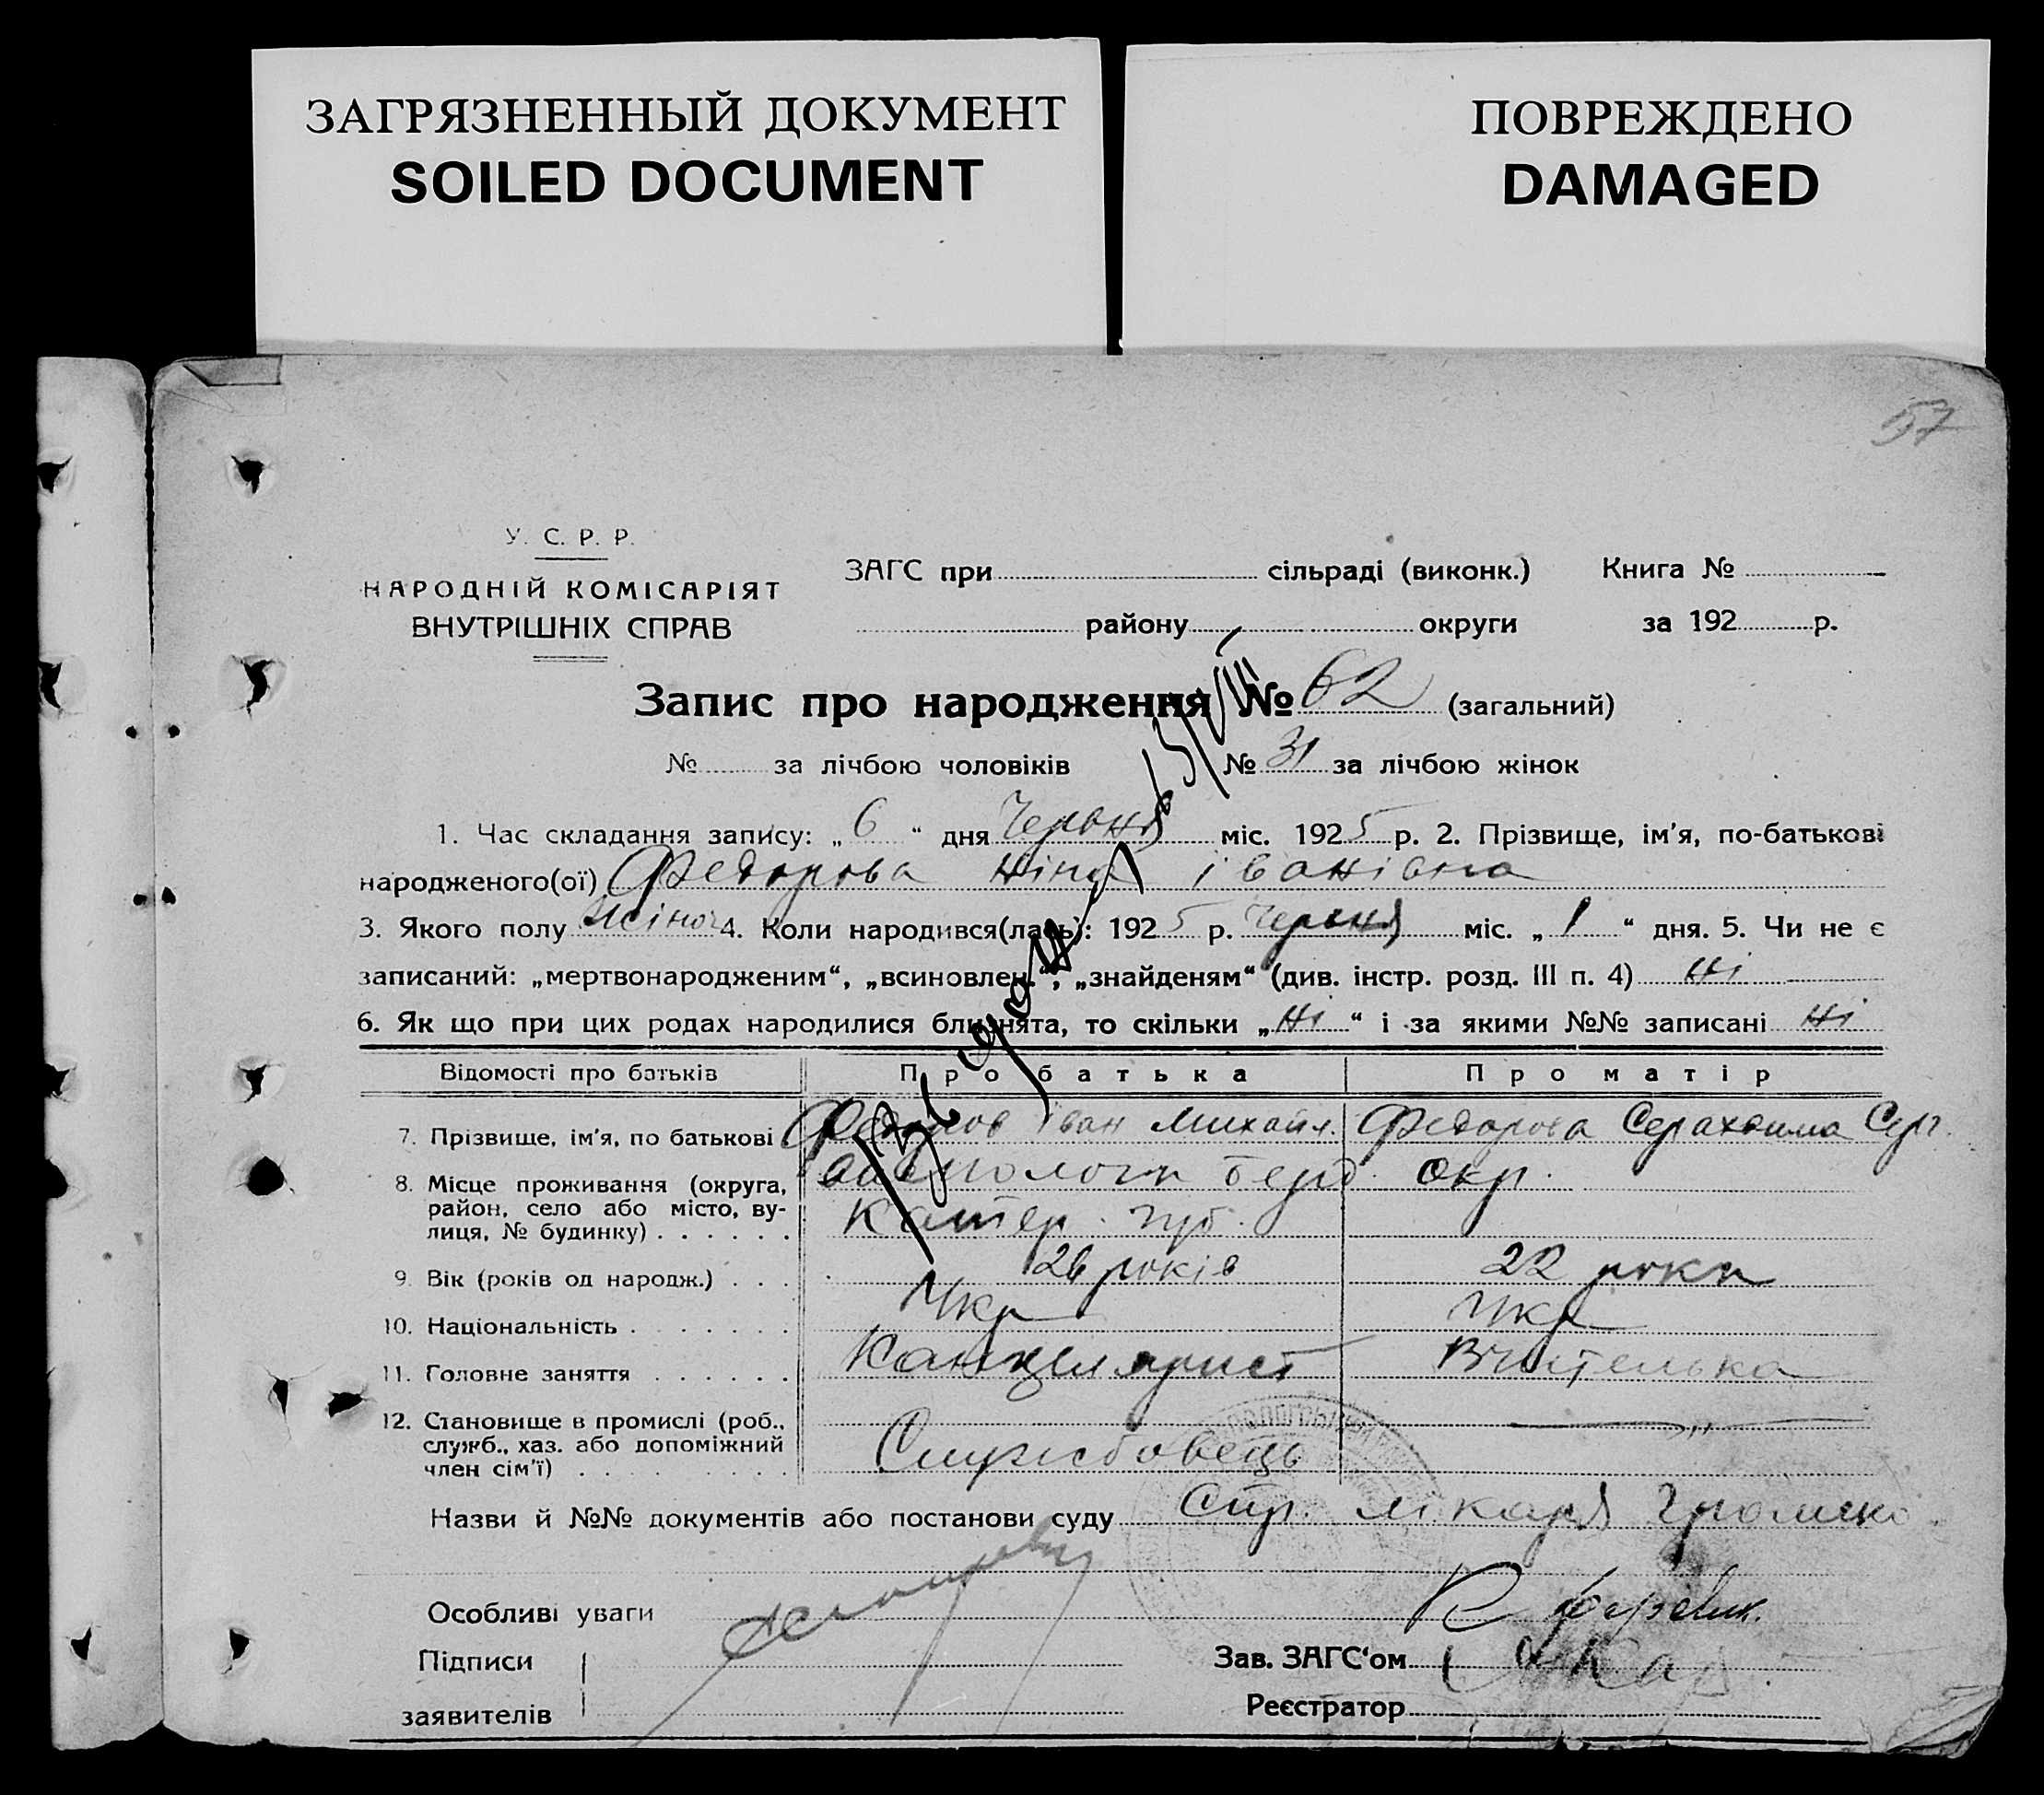 ЗАГРЯЗНЕННЫЙ ДОКУМЕНТ
SOILED DOCUMENT
ПОВРЕЖДЕНО
DAMAGED
57
У. С. Р. Р.
НАРОДНІЙ КОМІСАРІЯТ
ВНУТРІШНІХ СПРАВ
ЗАГС при сільраді (виконк.) Книга №
району округи за 192 р.
Запис про народження № 62 (загальний)
№ за лічбою чоловіків № 31 за лічбою жінок
1. Час складання запису: „ 6 “ дня Червня міс. 1925 р. 2. Прізвище, ім'я, по-батькові
народженого(ої) Федорова Ніна Іванівна
3. Якого полу жіноч 4. Коли народився(лась): 1925 р. Червня міс. „ 1 “ дня. 5. Чи не є
записаний: „мертвонародженим“, „всиновлен.“, „знайденям“ (див. інстр. розд. III п. 4) Ні
6. Як що при цих родах народилися близнята, то скільки „ Ні “ і за якими №№ записані Ні
Відомості про батьків Про батька Про матір
7. Прізвище, ім'я, по батькові Федоров Іван Михайл. Федорова Серахвима Серг.
8. Місце проживання (округа, район, село або місто, вулиця, № будинку) окр.
Катер. губ.
9. Вік (років од народж.) 26 років 22 роки
10. Національність Укр Укр
11. Головне заняття Канцелярист Вчителька
12. Становище в промислі (роб., служб., хаз. або допоміжний член сім'ї) Службовець — „ —
Назви й №№ документів або постанови суду Спр. лікаря
Особливі уваги
Підписи
заявителів
Зав. ЗАГС'ом
Реєстратор